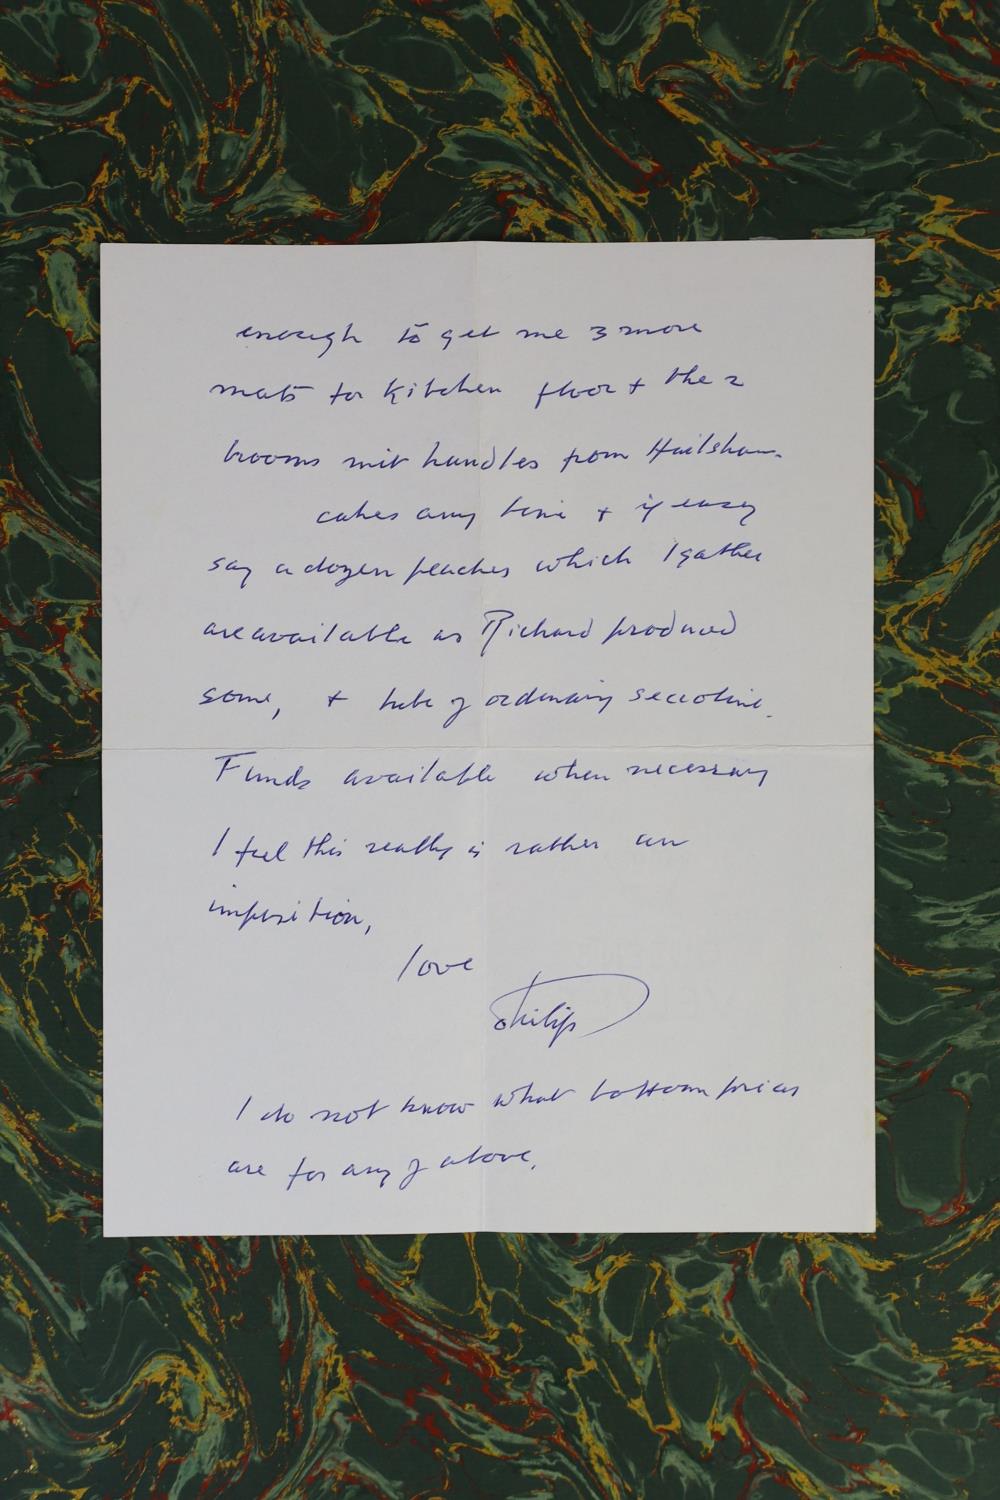 enough to get me 3 more
mats for Kitchen floor + the 2
brooms mit handles from Hailsham.
cakes any time + if easy
say a dozen peaches which I gather
are available as Richard produced
some, + tube of ordinary seccotine.
Funds available when necessary
I feel this really is rather an
imposition,
love
Philip
I do not know what bottom prices
are for any of above.